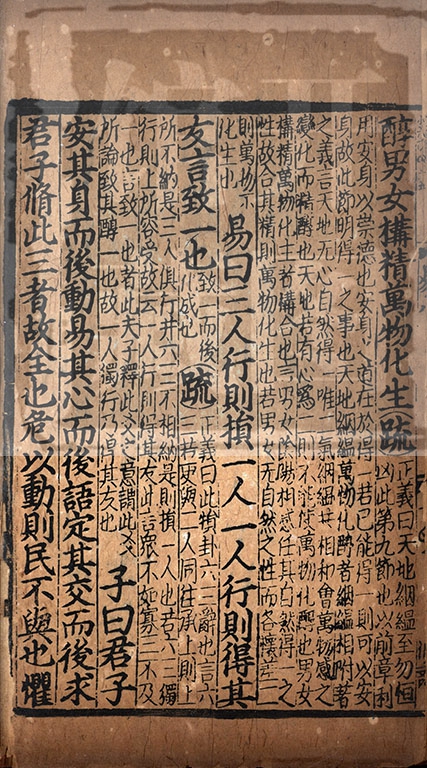 醇男女構精萬物化生疏正義曰天地絪緼至勿恒
凶此第九節也以前章利
用安身以崇德也安身之道在於得一若己能得一則可以安
身故此節明得一之事也天地絪緼萬物化醇者絪緼相附著
之義言天地无心自然得一唯二氣絪緼共相和會萬物感之
變化而精醇也天地若有心爲二則不能使萬物化醇也男女
構精萬物化生者構合也言男女陰陽相感任其自然得一之
性故合其精則萬物化生也若男女无自然之性而各懷差二
則萬物不
化生也
易曰三人行則損一人一人行則得其
友言致一也致一而後
化成也
疏正義曰此損卦六三爻辭也言六
三若更與二人同往承上則上
所不納是三人俱行并六三不相納是則損一人也若六三獨
行則上所容受故云一人行則得其友此言眾不如寡三不及
一也言致一也者此夫子釋此爻之意謂此爻
所論致其醇一也故一人獨行乃得其友也
子曰君子
安其身而後動易其心而後語定其交而後求
君子脩此三者故全也危以動則民不與也懼